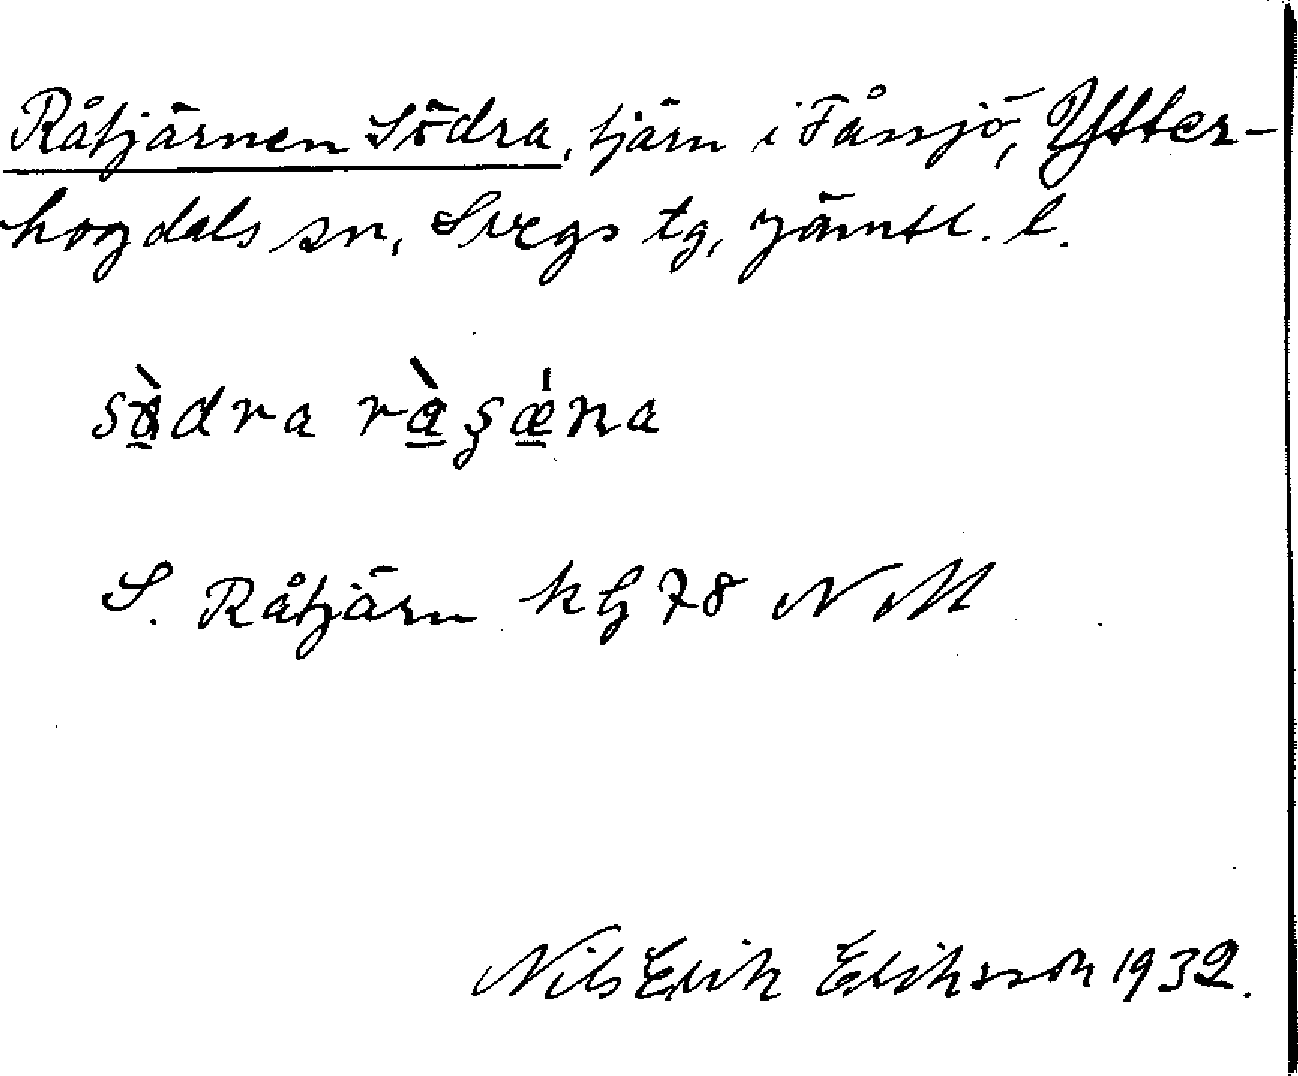 Råtjärnen Södra, tjärn i Fåssjö, Ytter-
hogdals sn, Svegs tg, Jämtl. l.
sö̀dra ràʂæ̀na
S. Råtjärn kbl 78 NM
Nils Erik Eriksson 1932.